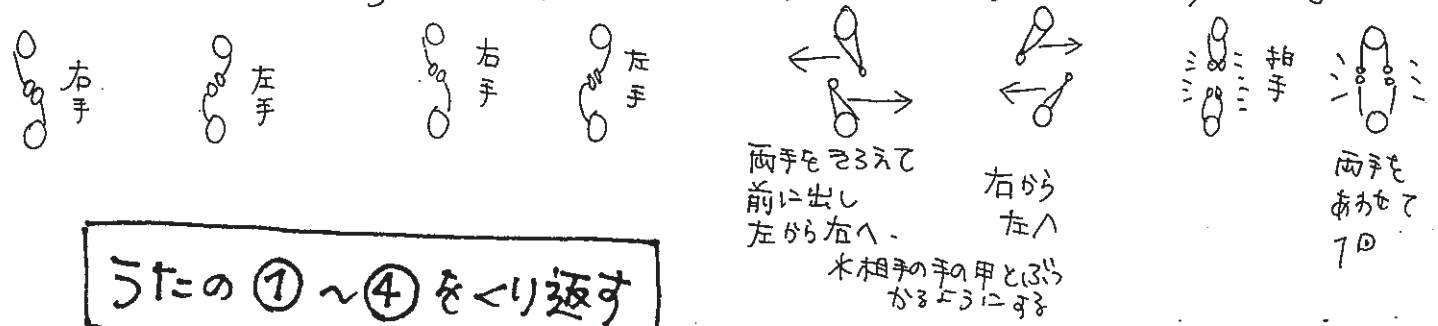 右手
左手
右手
左手
拍手
両手をそろえて
前に出し
左から右へ.
右から
左へ
両手を
あわせて
1回
※相手の手の甲とぶつ
かるようにする
うたの①〜④をくり返す